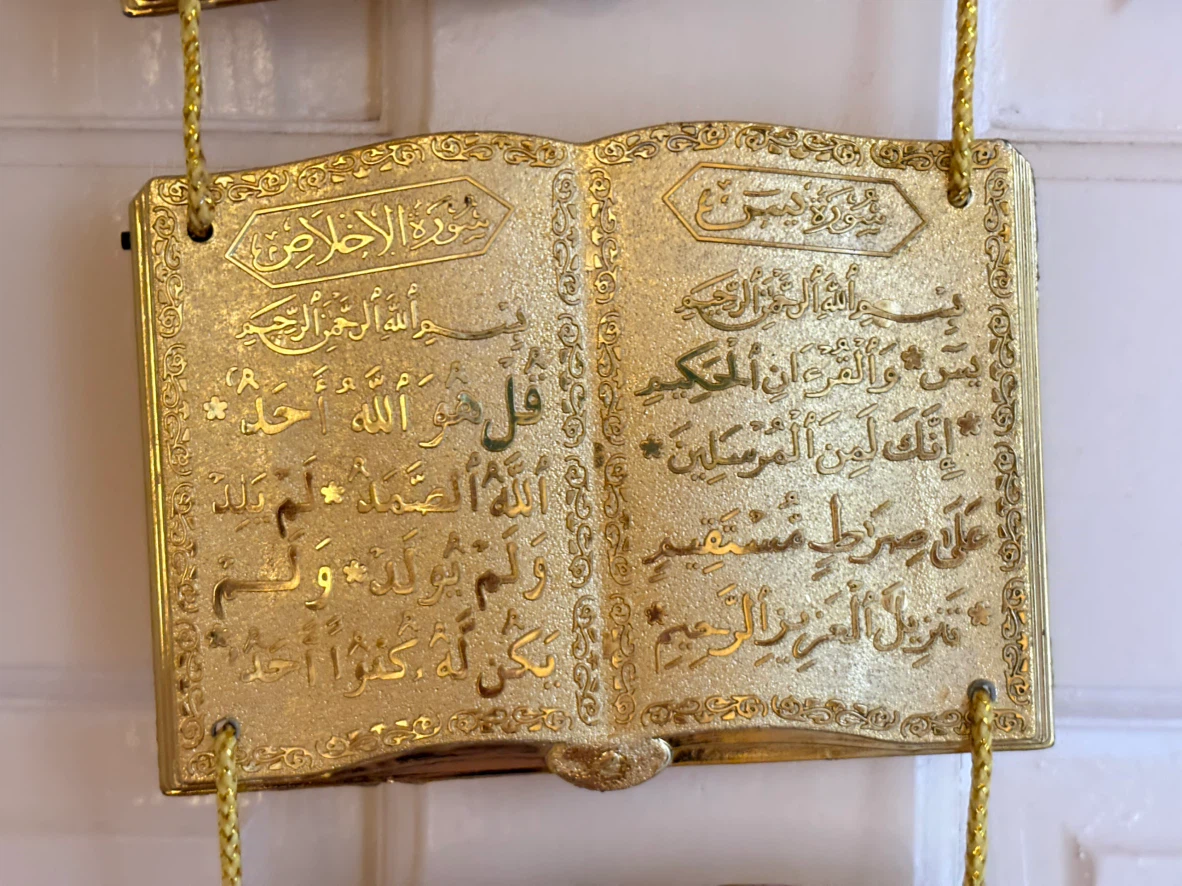 سُورَةُ يسٓ
بِسْمِ ٱللَّهِ ٱلرَّحْمَٰنِ ٱلرَّحِيمِ
يسٓ * وَٱلْقُرْءَانِ ٱلْحَكِيمِ
* إِنَّكَ لَمِنَ ٱلْمُرْسَلِينَ *
عَلَىٰ صِرَاطٍ مُّسْتَقِيمٍ
* تَنزِيلَ ٱلْعَزِيزِ ٱلرَّحِيمِ *
سُورَةُ الإِخْلَاصِ
بِسْمِ ٱللَّهِ ٱلرَّحْمَٰنِ ٱلرَّحِيمِ
قُلْ هُوَ ٱللَّهُ أَحَدٌ *
ٱللَّهُ ٱلصَّمَدُ * لَمْ يَلِدْ
وَلَمْ يُولَدْ * وَلَمْ
يَكُن لَّهُۥ كُفُوًا أَحَدٌ *